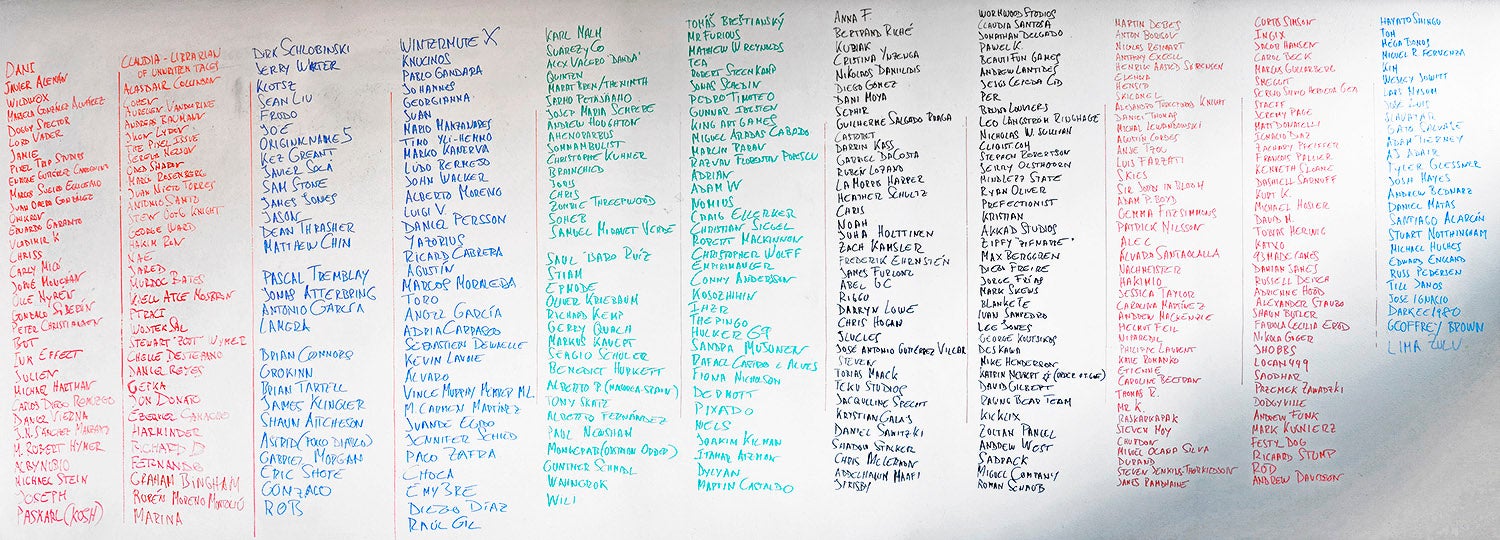 DANI
JAVIER ALEMÁN
WILDVOX
MARCA GONZÁLEZ ALVAREZ
DOGGY SPECTOR
LORD VADER
JAMIE
PIXEL TRIP STUDIOS
EUGENE GUTIÉRREZ
MARCOS
JUAN ORERO GONZÁLEZ
OMIKRON
EDUARDO GARABITO
VLADIMIR K
CHRISS
CARLY MICÓ
JORGE MONCHAN
OLLE NYRÉN
GONZALO SIDERÍN
PETER CHRISTIANSEN
BUT
IUR EFFECT
JULIEN
MICHAEL HARTMAN
CARLOS DIEGO ROMERGO
DANIEL VIEZNA
J.N. SÁNCHEZ
M. ROBERT HYMER
ALBYNIBIO
MICHAEL STEIN
JOSEPH
PASKARL (KOSH)
CLAUDIA - LIBRARIAN
OF UNWRITTEN TALES
ALASDAIR COLUHOUN
LOREN
AURELIEN VANDORINE
ANDREAS BAUMANN
JASON LYDEN
THE PIXEL ISSUE
SERGEJ NELSON
ODED SHARON
MARCO ROSENBERG
JUAN NIETO TORRES
ANTONIO SANTO
STEW OOTG KNIGHT
GEORGE WARD
HAKIM RON
NAE
JARED
MURDOC BATES
KJELL ATGE MOSBRON
PTRACI
WOJTEK SAL
STEWART "ZOOT" WYMER
CHELLE DESTEFANO
DANIEL REYES
GEPKA
JON DONATO
EBERNER CAMACHO
HARMINDER
RICHARD D
FERNANDO
GRAHAM BINGHAM
RUBÉN MORENO MONTOLIÚ
MARINA
DIRK SCHLOBINSKI
JERRY WRITER
KLOTSZ
SEAN LIU
FRODO
JOE
ORIGINALNAMES
KEZ GREANT
JAVIER SOLA
SAM STONE
JAMES JONES
JASON
DEAN THRASHER
MATTHEW CHIN
PASCAL TREMBLAY
JONAS ATTERBRING
ANTONIO GARCÍA
LANGRA
BRIAN CONNORS
OROKINN
BRIAN TARTELL
JAMES KLINGLER
SHAUN AITCHESON
ASTRID (POLLO DIABLO)
GABRIEL MORGAN
ERIC SHOTE
GONZALO
ROB
WINTERMUTE X
KNUCINOS
PABLO GANDARA
JOHANNES
GEORGIANNA
JUAN
MARIO MANZANARES
TIMO YLI-HEMMO
MARKO KANERVA
LUDO BERMEJO
JOHN WALKER
ALBERTO MORENO
LUIGI V.
DANIEL PERSSON
YAZORIUS
RICARD CABRERA
AGUSTÍN
MARCOS MORALEDA
TORO
ANGEL GARCÍA
ADRIA CARRASCO
SEBASTIEN DEWAELLE
KEVIN LAVOIE
ALVARO
VINCE MURPHY
M. CARMEN MARTÍNEZ
JUANDE LUPO
JENNIFER SCHIED
PACO ZAFRA
CHOCA
EMYBRE
DIEGO DÍAZ
RAÚL GIL
KARL MALM
SUAREZYCO
ALEX VALERO 'DANDA'
QUINTEN
MARATBREN/THENINTH
JARMO PETÄSAAHO
JOSEP MARIA SEMPERE
ANDREW HOUGHTON
AHENOBARBUS
SOMNAMBULIST
CHRISTOPHE KUHNER
BRAINCHILD
JORIS
CHRIS
ZOMBIE THREEPWOOD
SOHEB
SAMUEL MIRAVET VERDE
SAUL "BARO RUIZ
STIAM
EPMODE
OLIVER KRIEBAUM
RICHARD KEMP
GERRY QUACH
MARKUS KAUERT
SERGIO SCHULER
BENEDICT HURKETT
ALBERTO P (MADRUGA-SPAIN)
TOMY SKATE
ALBERTO FERNÁNDEZ
PAUL NEWSHAM
MONGERAT (OKTMON ORDER)
GUNTHER SCHNABL
WAHNGROK
WILI
TOMÁŠ BREŠTIANSKÝ
MR FURIOUS
MATHEW W REYNOLDS
TEA
ROBERT STEENKAMP
JONAS SCHEDIN
PEDRO TIMOTEO
GUNNAR IBSTEN
KING ART GAMES
MIGUEL ARADAS CABADO
MARCIN PARAN
RAZVAN FLORENTIN POPESCU
ADRIAN
ADAM W
NOMIUS
CRAIG ELLERKER
CHRISTIAN SIEGEL
ROBERT MACKINNON
CHRISTOPHER WOLFF
EMPIRIMANCER
CONNY ANDERSSON
KOSOZHIHIN
IMZR
THEPINGO
HULKER 69
SANDRA MUSONEN
RAFAEL CASTRO E ALVES
FIONA NICHOLSON
DERMOTT
PIXADO
NELS
JOAKIM KILMAN
ITAMAR ATZMAN
DYLYAN
MARTIN CASTALDO
ANNA F.
BERTRAND RICHÉ
KUBIAK
CRISTINA YUZUGA
NIKOLAS DANIILDIS
DIEGO GOMEZ
DANI MOYA
SEPHIR
GUILHERME SALGADO BRAGA
CASTORET
DARRIN KASS
GABRIEL DACOSTA
RUBÉN LOZANO
LA MORRIS HARPER
HEATHER SCHULTZ
CHRIS
NOAH
JUHA HOLTTINEN
ZACH KAMSLER
FREDERIK EHRNSTEIN
JAMES FURLONG
ABEL GC
RIGGO
DARRYN LOWE
CHRIS HOGAN
JLUCLES
JOSÉ ANTONIO GUTIÉRREZ VILLAR
STEVEN
TOBIAS MAACK
TEKU STUDIOS
JACQUELINE SPECHT
KRYSTIAN GALAJ
DANIEL SAWITZKI
SHADOW STALKER
CHRIS MCLERNON
ABDELHAKIM HAAFI
JTRISBY
WORMWOOD STUDIOS
CLAUDIA SANTOSA
JONATHAN DELGADO
PAWEL K.
BEAUTIFUN GAMES
ANDREW LANTIDES
JESÚS CEREIJA CID
PER
BRUNO LOUVIERS
LEO LANGSTROM RINGHAGE
NICHOLAS W. SULLIVAN
CLIQIST.COM
STEPHEN ROBERTSON
JERRY OLSTHOORN
MINDLEZZ STATE
RYAN OLIVER
PREFECTIONIST
KRISTIAN
AKKAD STUDIOS
ZIFFY 'ZIFNARE'
MAX BERGGREN
DIEGO FREIRE
JORGE FRIAS
MARK SKEWS
BLANKETE
IVAN SAMPEDRO
LEE JONES
GEORGE KOUTSIKOS
DESKAWA
MIKE HENDERSON
DAVID GILBERT
KICKLIX
ZOLTAN PANCEL
ANDREW WEST
SADPACK
MIGUEL COMPANY
ROMAN SCHAUB
MARTIN DEBES
ANTON BORISOV
NICOLAS REINART
ANTHONY EXCELL
HENRIK AASTED SØRENSEN
ELENIUM
HENSTO
SKLOANEL
ALEJANDRO TRUEFORDS KNIGHT
DANIEL THOMAS
MICHAL LEWANDOWSKI
AGUSTIN CORDES
ANJE TROC
LUIS FARZATI
SKIES
SIR JORDI IN BLOOM
ADAM P. BOYD
GEMMA FITZSIMMONS
PATRICK NILSSON
ALEC
ALVARO SANTAOLALLA
NACHMEISTER
HAKIMIO
JESSICA TAYLOR
CAROLINA MARTÍNEZ
ANDREW MACKENZIE
HELMUT FEIL
NIMAREDIL
PHILIPPE LAURENT
KALE ROMANKO
ETIENNE
CAROLINE BERTRAN
THOMAS R.
MR K.
RASKARKAPAK
STEVEN MOY
CHURDON
MIGUEL OCARO SILVA
DURAND
STEVEN JENKINS-THORKILDSON
JAMES PAMDHAINE
CURTIS SIMSON
INGIX
JACOB HANSEN
CAROL BECK
MARCUS GULLARBERG
SNEGGUT
SERGIO SUMO HEREDIA GEA
STACFF
JEREMY PAGE
MATT DONATELLI
IGNACIO DIAZ
ZACHARY PFEIFFER
FRANCOIS PALLIER
KENNETH SLOANE
DASHIELL SARNOFF
KURT K
MICHAEL HOSIER
DAVID H.
TOBIAS HERWIG
KATNO
93 MADE GAMES
DAMIAN SANES
RUSSELL DEITCH
ADRIENNE HOOD
ALEXANDER STAUBO
SHAUN BUTLER
FABIOLA CECILIA EROD
NIKOLA GIGER
JHOBBS
LOCAN4499
SAODHAR
PRZEMEK ZAWADZKI
DODGYVILLE
ANDREW FUNK
MARK KUSNIERZ
FESTY DOG
RICHARD STUMP
ROD
ANDREW DAVIDSON
HAYATO SHINGU
TOM
MEGA DONOS
MIGUEL R. FERVENZA
KIM
WESLEY JOWITT
LARS MYSUM
JOSE LUIS
SLAVATAR
GATO SALVAJE
ADAM TIERNEY
AJ ADAIR
TYLER GLESSNER
JOSH HAYES
ANDREW BEDNARZ
DANIEL MATAS
SANTIAGO ALARCÓN
STUART NOTTHINGHAM
MICHAEL HUGHES
EDWARD ENGLAND
RUSS PEDERSEN
TILL DANOS
JOSE IGNACIO
DARKEE1980
GEOFFREY BROWN
LIMA ZULU